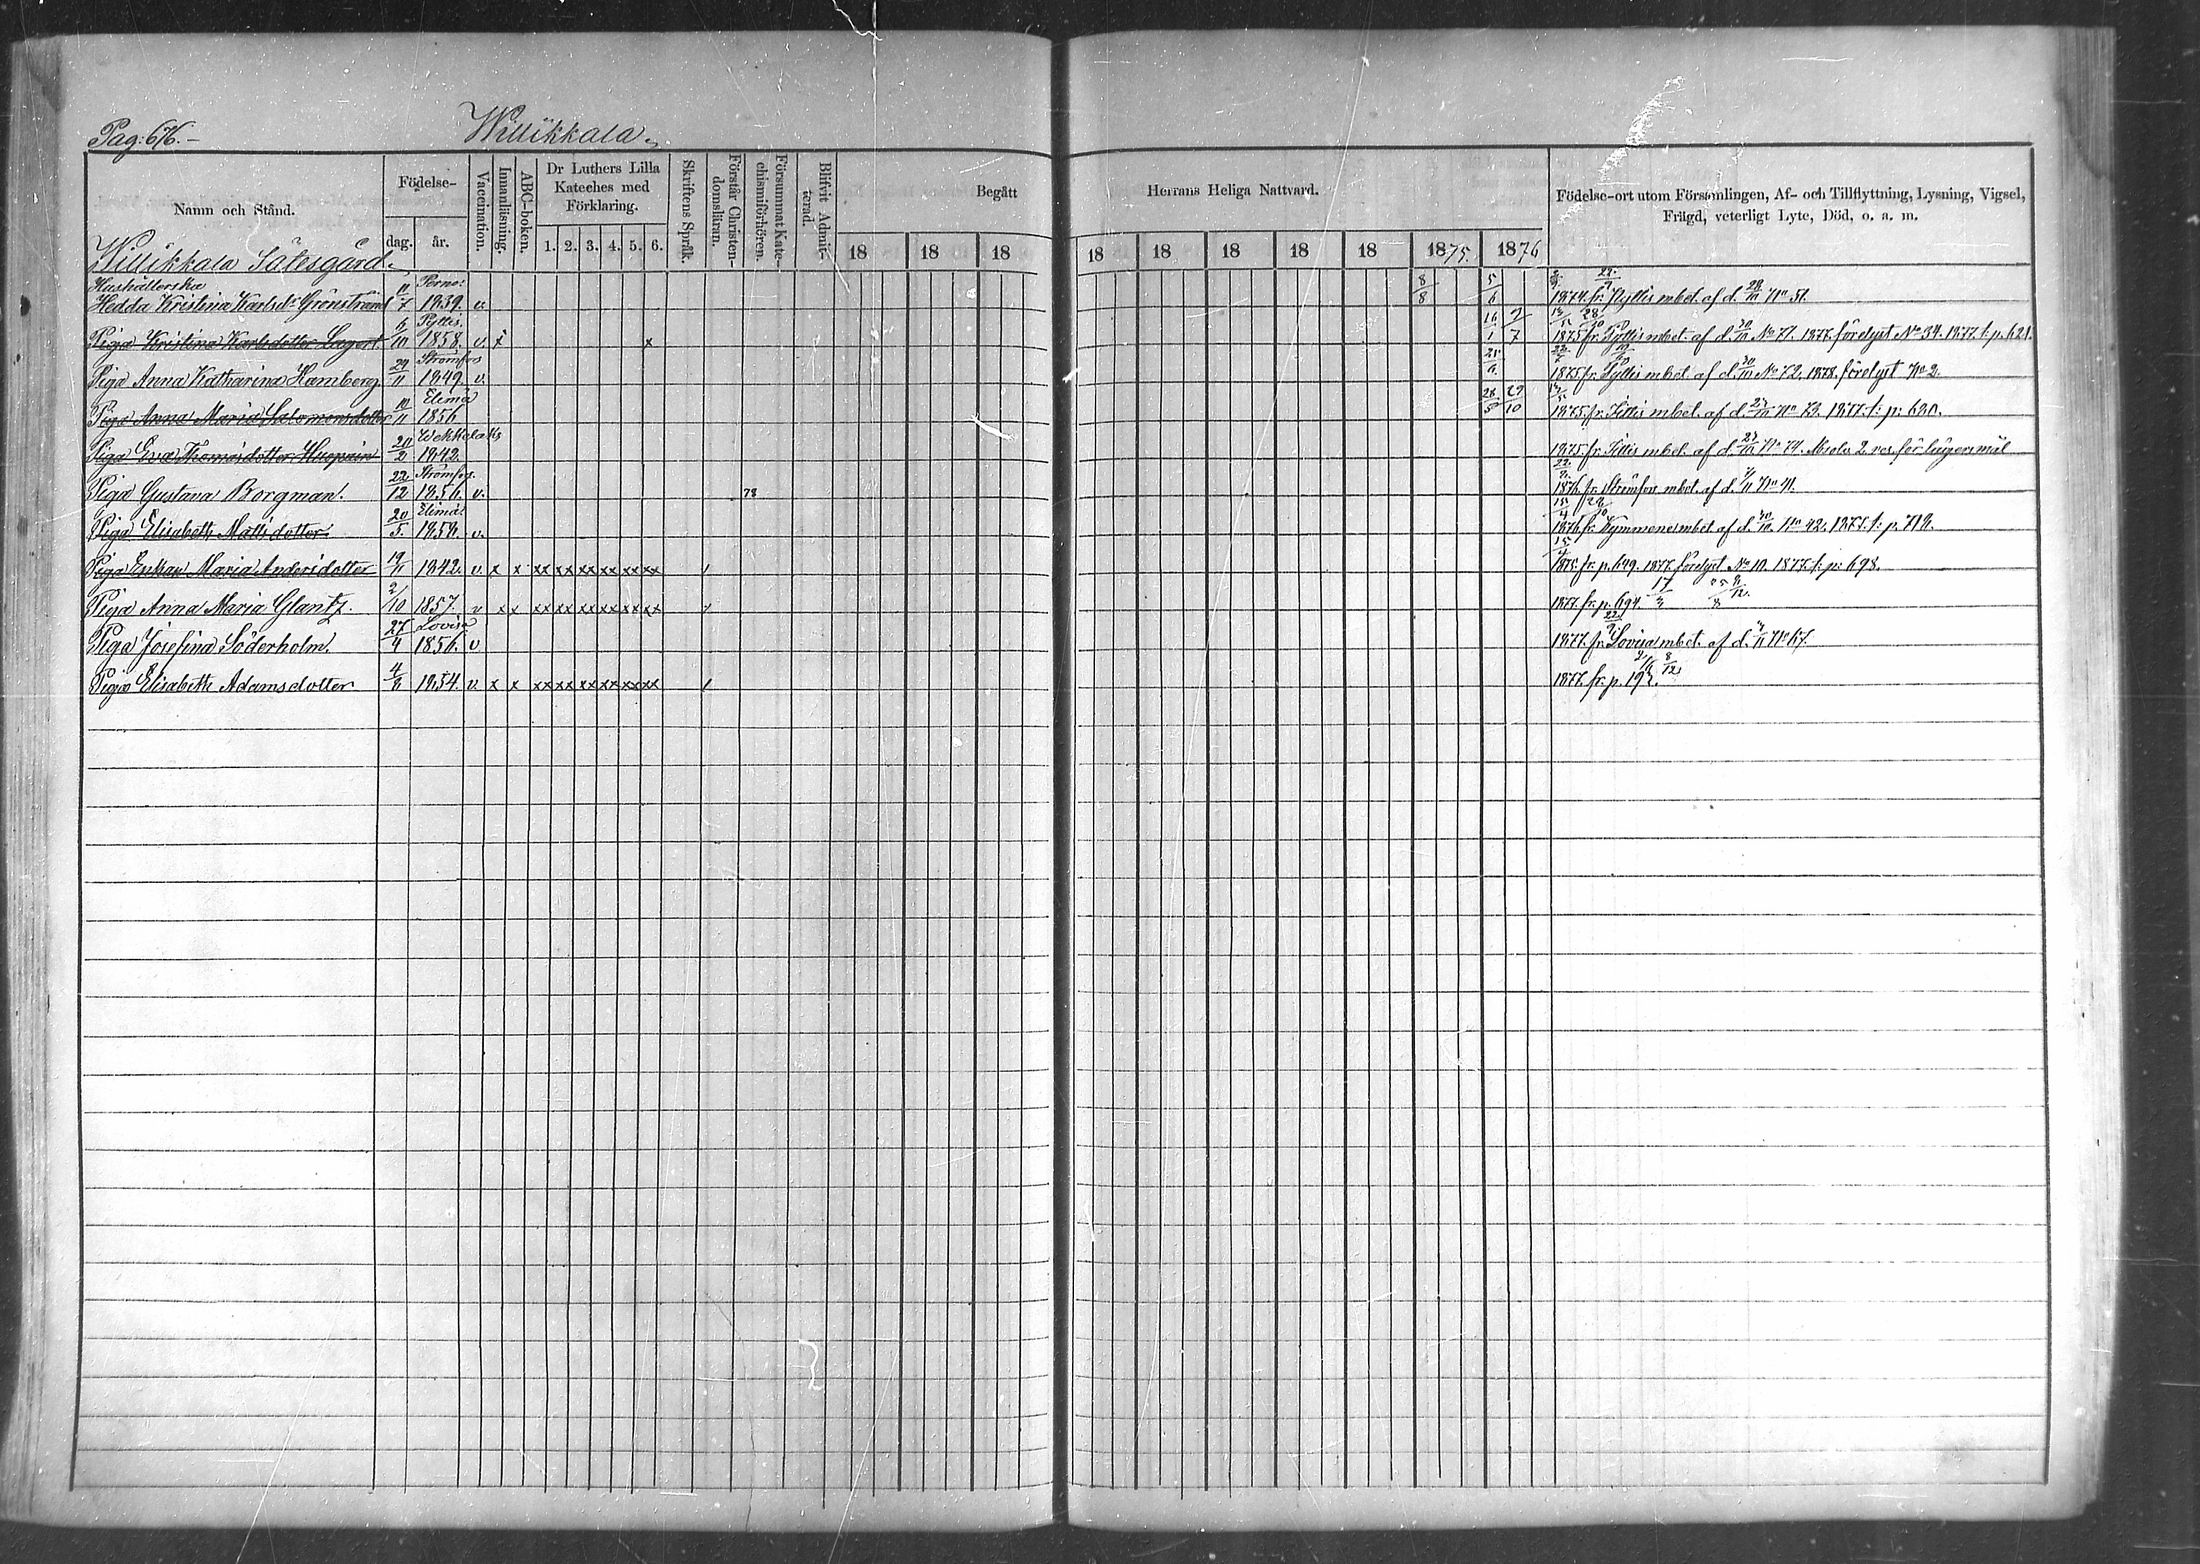 Pag: 676.
Willikkala
Namn och Stånd.
Födelse-
dag.
år.
Vaccination.
Innanläsning.
ABC-boken.
Dr Luthers Lilla
Kateches med
Förklaring.
1. 2. 3. 4. 5. 6.
Skriftens Språk.
Förstår Christen-
domsläran.
Försummat Kate-
chismiförhören.
Blifvit Admit-
terad.
Begått
Herrans Heliga Nattvard.
18 18 18 18 18 18 18 18 1875. 1876
Födelse-ort utom Församlingen, Af- och Tillflyttning, Lysning, Vigsel,
Frägd, veterligt Lyte, Död, o. a. m.
Willikkala Sätesgård
Hushållerska 11 Perno
Hedda Kristina Karlsdr Grönstrand 7 1839. v. 8/8 5/6 1874. fr. Pyttis mbet. af d. 28/10 No 51.
Piga Kristina Karlsdotter Lagert. 6/10 Pyttis. 1858. v. x x 16/1 2/7 1875 fr. Pyttis mbet. af d. 30/10 No 71. 1877. förelyst No 34. 1877. t: p: 621.
Piga Anna Katharina Hamberg 29/11 Strömfors 1849. v. 1875 fr. Pyttis mbet. af d. 30/10 No 72. 1878. förelyst No 2.
Piga Anna Maria Salomonsdotter 10/11 Elimä 1856 1875. fr. Pittis mbet. af d. No 73. 1877. t: p: 630.
Piga Eva Thomasdotter 20/2 Wekkelaks 1842. 1875. fr. Pittis mbet. af d. No 74. Absolv. 2 res. för lägersmål
Piga Gustava Borgman. 22/12 Strömfors. 1856. v. 78 1876. fr. Strömfors mbet. af d. No 41.
Piga Elisabeth Mattsdotter 20/5. Elimä. 1858. v. 1876 fr. Kymmene mbet. af d. 30/10 No 42. 1877. t: p. 718.
Piga Maria Andersdotter 19/1 1842. v. x x xx xx xx xx xx xx 1875. fr. p. 649. 1877. förelyst No 10. 1877. t: p: 698.
Piga Anna Maria Glantz. 2/10 1857. v x x xx xx xx xx xx xx 1877. fr. p. 694.
Piga Josefina Söderholm. 27/4 Lovisa 1856. v 1877. fr. Lovisa mbet. af d. No 67.
Piga Elisabeth Adamsdotter 4/8 1854. v. x x xx xx xx xx xx xx 1877. fr. p. 192. 8/12